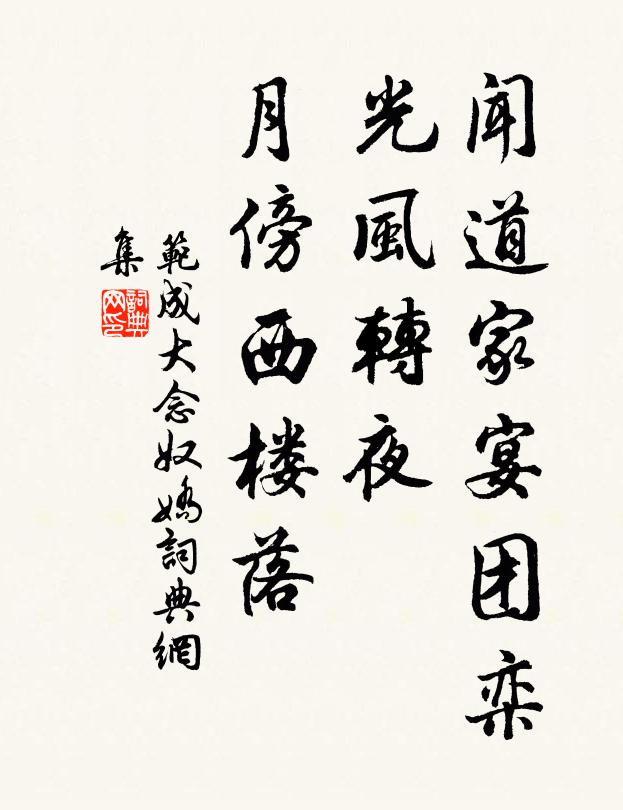 闻道家宴团栾
光風轉夜
月傍西楼落
範成大念奴嬌詞典網
集
詞典
网印